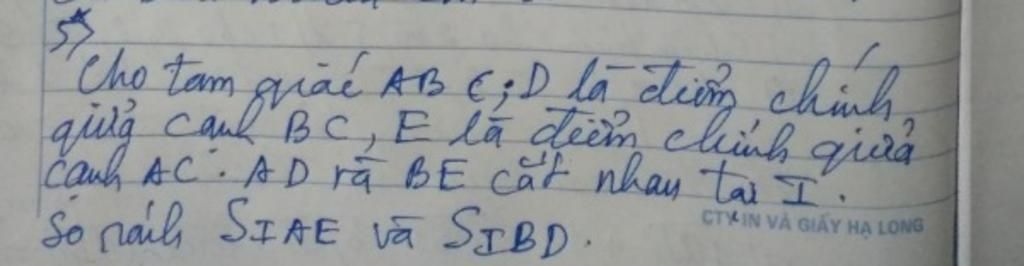 5*)
Cho tam giác ABC; D là điểm chính
giữa cạnh BC, E là điểm chính giữa
cạnh AC. AD và BE cắt nhau tại I.
So sánh SIAE và SIBD.
CTY IN VÀ GIẤY HẠ LONG